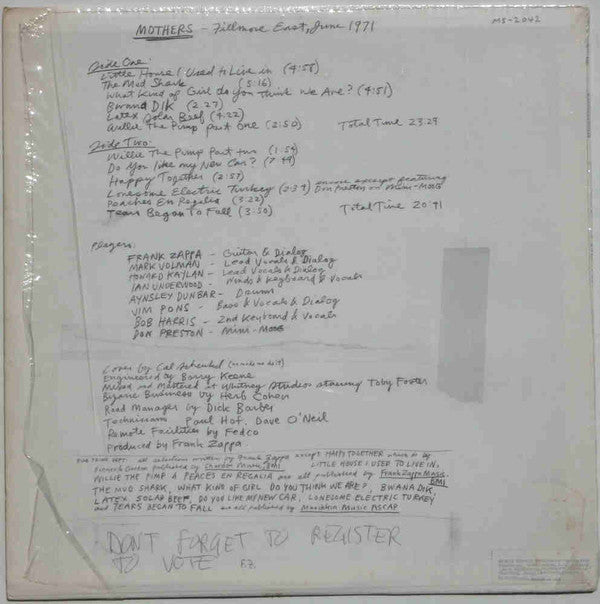 MOTHERS - Fillmore East, June 1971
MS-2042
Side One:
Little House I Used to Live in (4:58)
The Mud Shark (5:16)
What Kind of Girl do you Think We Are? (4:51)
Bwana Dik (2:27)
Latex Solar Beef (4:22)
Willie The Pimp part One (2:50) Total Time 23:29
Side Two:
Willie The Pimp Part two (1:54)
Do You like my New Car? (7:49)
Happy Together (2:57)
Lonesome Electric Turkey (2:34) encore excerpt featuring
Don Preston on Mini-Moog
Peaches En Regalia (3:22)
Tears Began To Fall (3:50) Total Time 20:41
Players:
FRANK ZAPPA - Guitar & Dialog
MARK VOLMAN - Lead Vocals & Dialog
HOWARD KAYLAN - Lead Vocals & Dialog
IAN UNDERWOOD - Winds & Keyboard & Vocals
AYNSLEY DUNBAR - Drums
JIM PONS - Bass & Vocals & Dialog
BOB HARRIS - 2nd Keyboard & Vocals
DON PRESTON - Mini-Moog
Cover by Cal Schenkel
Engineered by Barry Keene
Mixed and Mastered at Whitney Studios starring Toby Foster
Bizarre Business by Herb Cohen
Road Manager by Dick Barber
Technicians Paul Hof, Dave O'Neil
Remote Facilities by Fedco
Produced by Frank Zappa
all selections written by Frank Zappa except HAPPY TOGETHER which is by
published by Chardon Music, BMI LITTLE HOUSE I USED TO LIVE IN,
WILLIE THE PIMP & PEACES EN REGALIA are all published by Frank Zappa Music, BMI
THE MUD SHARK, WHAT KIND OF GIRL DO YOU THINK WE ARE?, BWANA DIK
LATEX SOLAR BEEF, DO YOU LIKE MY NEW CAR, LONESOME ELECTRIC TURKEY
and TEARS BEGAN TO FALL are all published by Music ASCAP
DON'T FORGET TO REGISTER
TO VOTE F.Z.